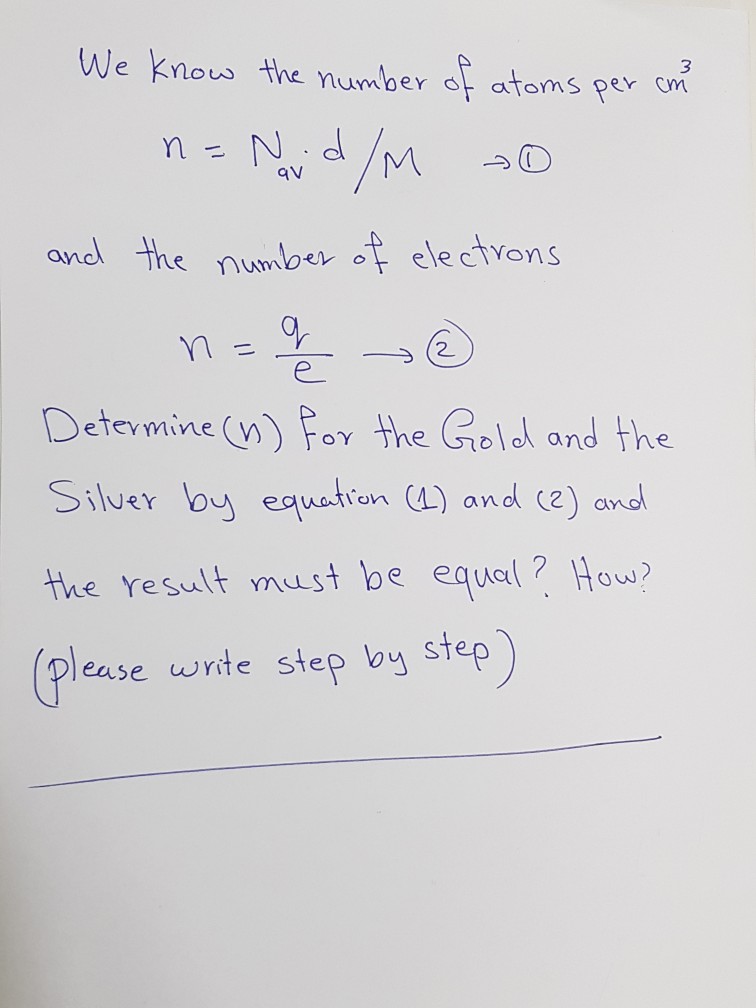 We know the number of atoms per cm³
n = N_av . d / M → ①
and the number of electrons
n = q/e → ②
Determine (n) for the Gold and the
Silver by equation (1) and (2) and
the result must be equal? How?
(please write step by step)